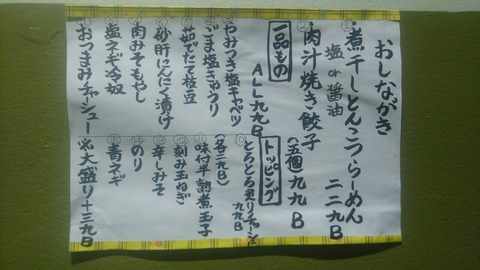 おしながき
① 煮干しとんこつらーめん
塩 or 醤油 二二九B
② 肉汁焼き餃子
(五個)九九B
一品もの
ALL九九B
やみつき塩キャベツ
ごま塩きゅうり
茹でたて枝豆
砂肝にんにく漬け
肉みそもやし
塩ネギ冷奴
おつまみチャーシュー
トッピング
とろとろ炙りチャーシュー
九九B
(各三九B)
味付半熟煮玉子
刻み玉ねぎ
辛しみそ
のり
青ネギ
大盛り+三九B